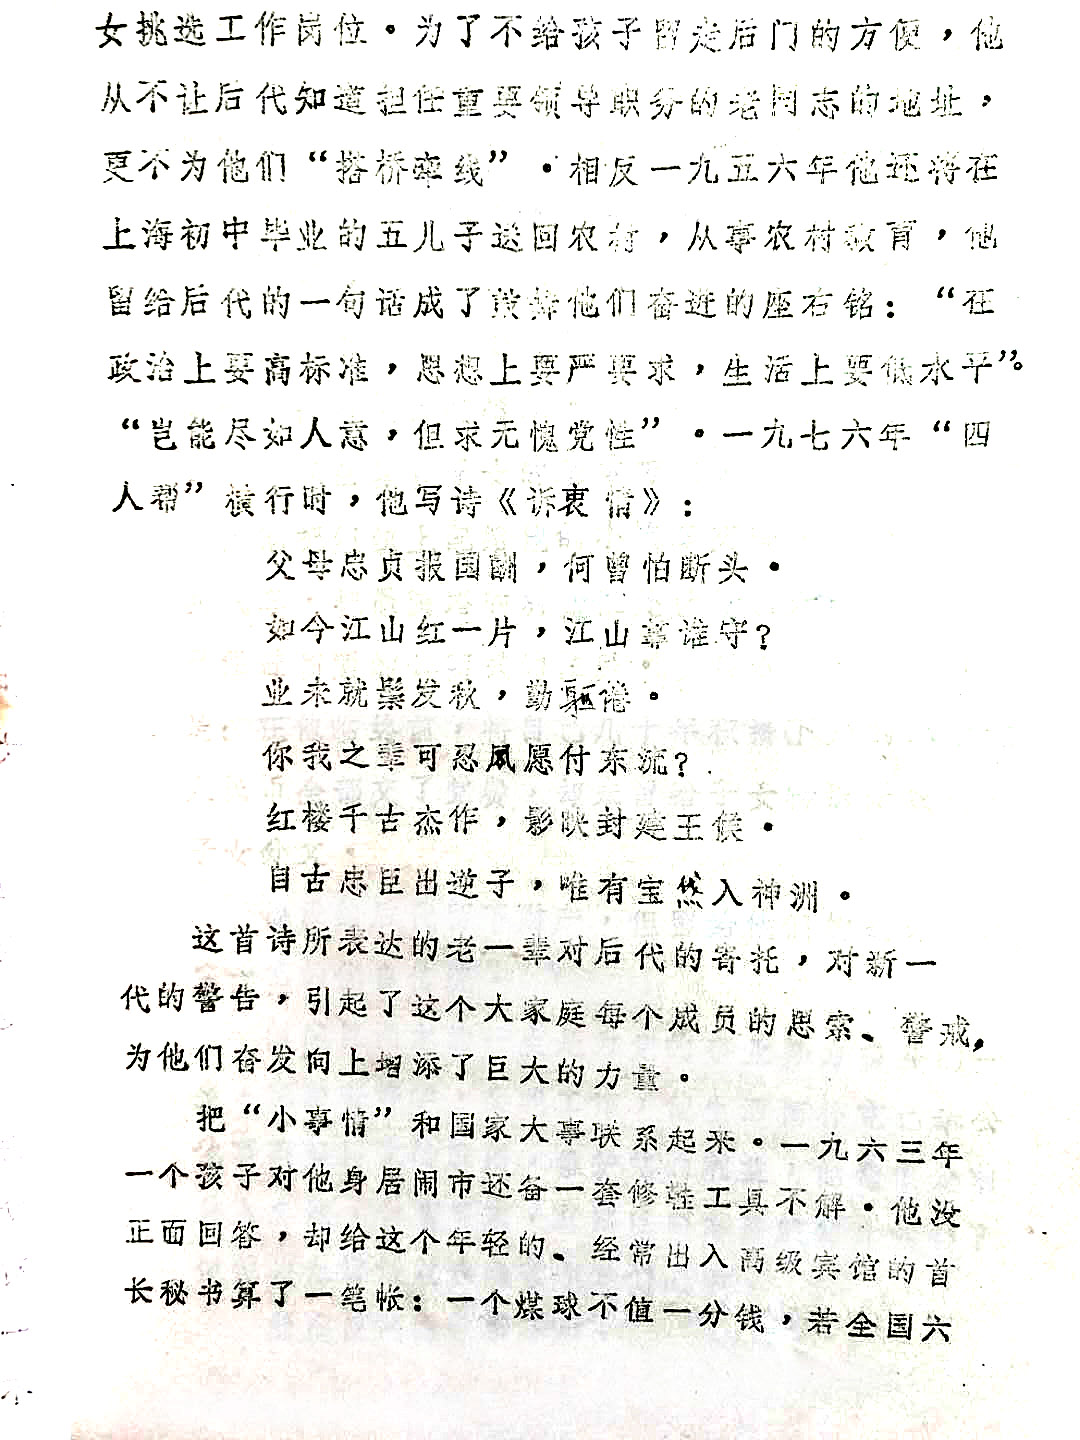 女挑选工作岗位。为了不给孩子留走后门的方便，他
从不让后代知道担任重要领导职务的老同志的地址，
更不为他们“搭桥牵线”。相反一九五六年他还将在
上海初中毕业的五儿子送回农村，从事农村教育，他
留给后代的一句话成了鼓舞他们奋进的座右铭：“在
政治上要高标准，思想上要严要求，生活上要低水平”。
“岂能尽如人意，但求无愧党性”。一九七六年“四
人帮”横行时，他写诗《诉衷情》：
父母忠贞报国酬，何曾怕断头。
如今江山红一片，江山靠谁守？
业未就鬓发秋，勤驱倦。
你我之辈可忍夙愿付东流？
红楼千古杰作，影映封建王候。
自古忠臣出逆子，唯有宝然入神洲。
这首诗所表达的老一辈对后代的寄托，对新一
代的警告，引起了这个大家庭每个成员的思索、警戒，
为他们奋发向上增添了巨大的力量。
把“小事情”和国家大事联系起来。一九六三年
一个孩子对他身居闹市还备一套修鞋工具不解。他没
正面回答，却给这个年轻的、经常出入高级宾馆的首
长秘书算了一笔帐：一个煤球不值一分钱，若全国六